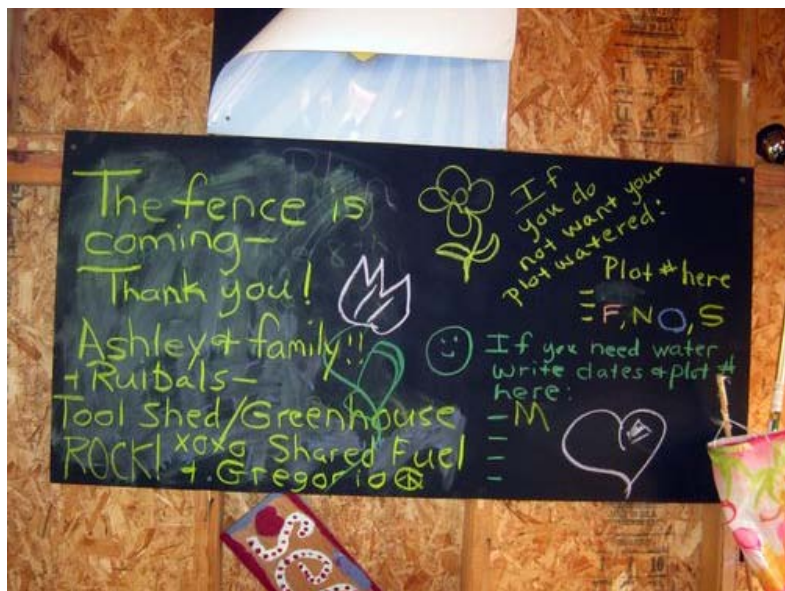 The fence is
coming—
Thank you!
Ashley + family!!
+ Ruibals—
Tool Shed/Greenhouse
ROCK! xoxo Shared Fuel
+ Gregorio
If
you do
not want your
plot watered:
Plot # here
F, N O, S
If you need water
write dates + plot #
here:
– M